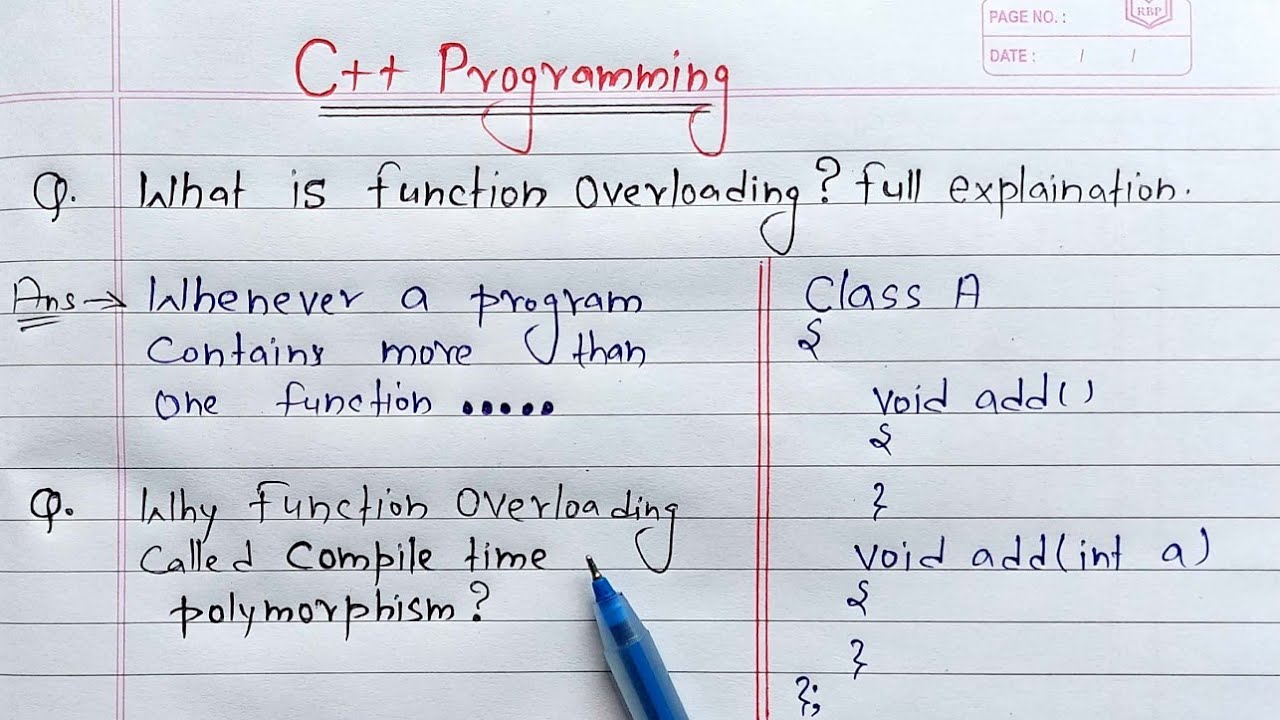 PAGE NO. :
RBP
DATE : / /
C++ Programming
Q. What is function Overloading? full explaination.
Ans → Whenever a program
Contains more than
One function .....
Q. Why function Overloading
Called Compile time
polymorphism?
Class A
{
void add()
{
}
void add(int a)
{
}
};